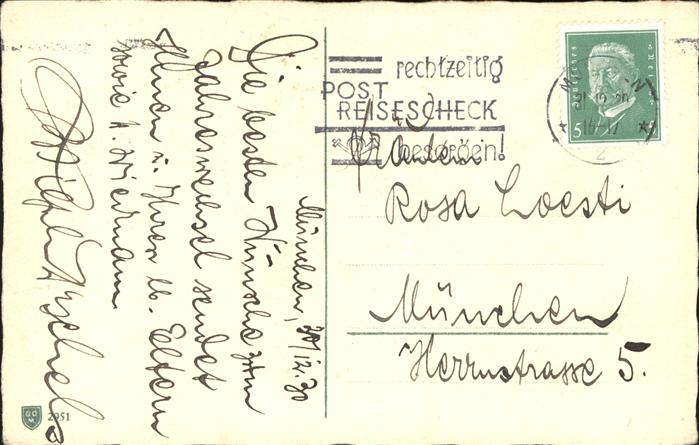 München, 30/12.30
Die besten Wünsche zum
Jahreswechsel sendet
Ihnen u. Ihren lb. Eltern
sowie
rechtzeitig
POST
REISESCHECK
besorgen!
Deutsches Reich
5
Fräulein
Rosa Loesti
München
Herrnstrasse 5.
2951